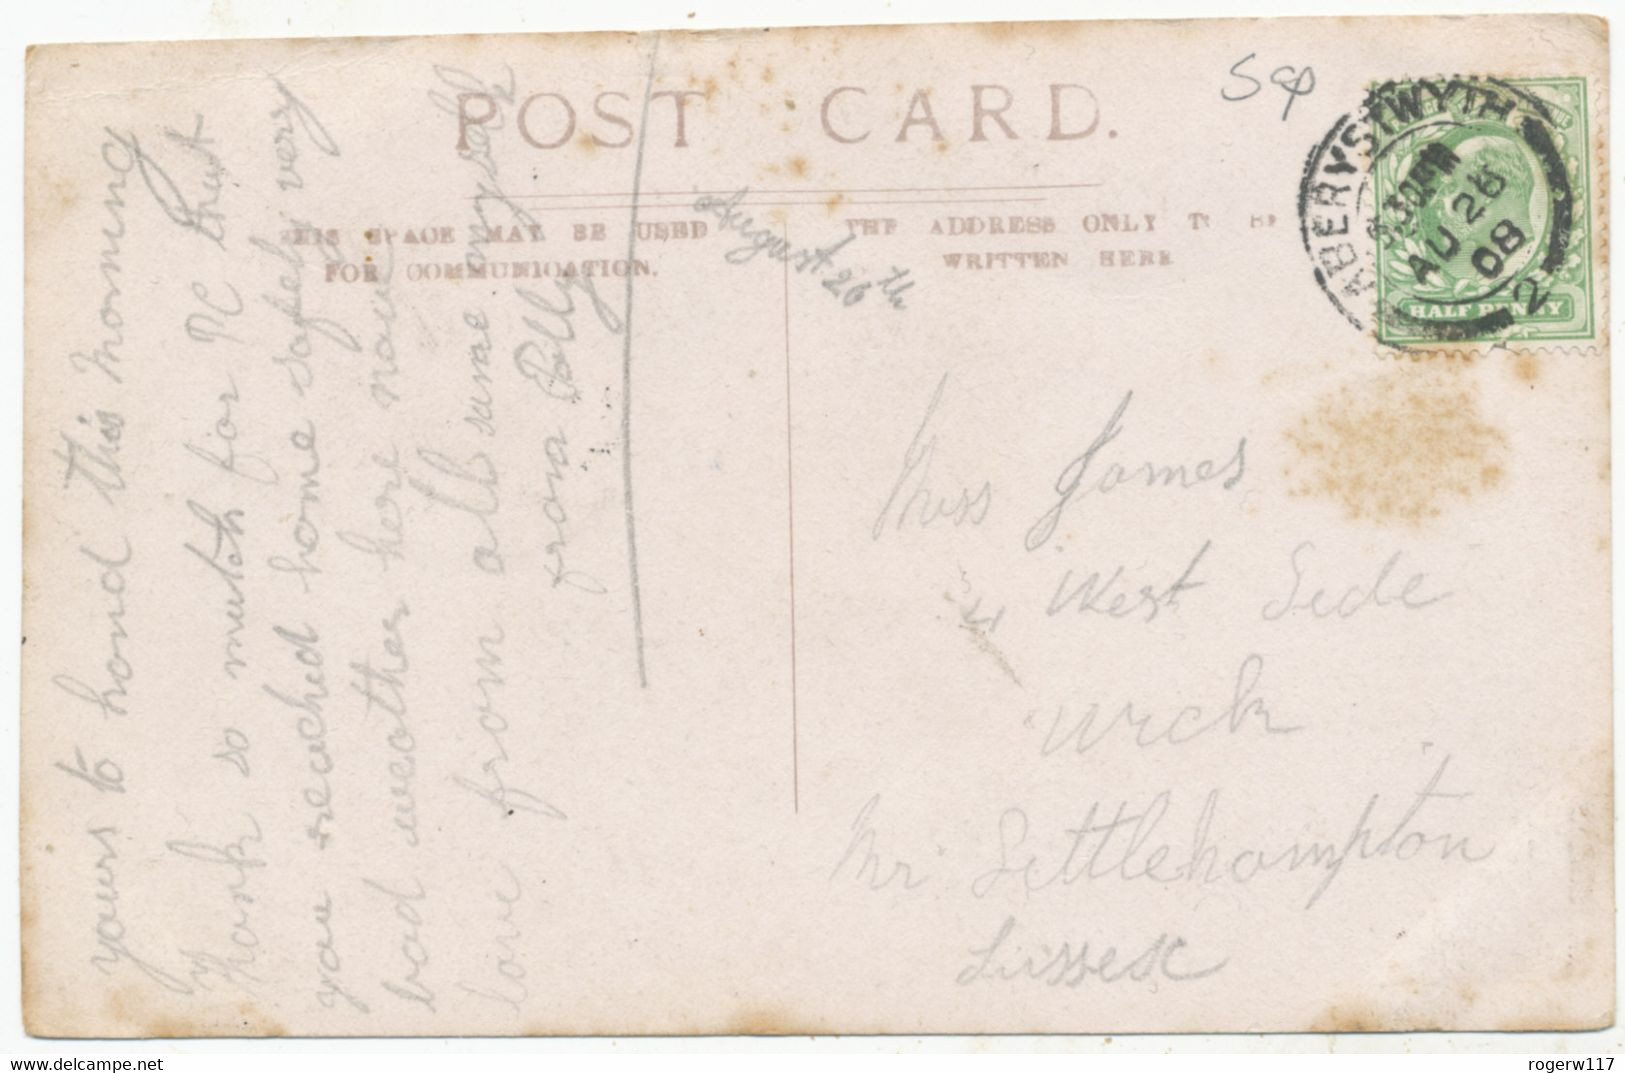 POST CARD.
THIS SPACE MAY BE USED
FOR COMMUNICATION.
THE ADDRESS ONLY TO BE
WRITTEN HERE
August 26th
yours to hand this morning
thank so much for PC that
you reached home safely very
bad weather here now
love from all same
from Polly
Miss James
West Side
Wick
Nr Littlehampton
Sussex
ABERYSTWYTH
AU 26
08
2
HALF PENNY
Delcampe.net
rogerw117